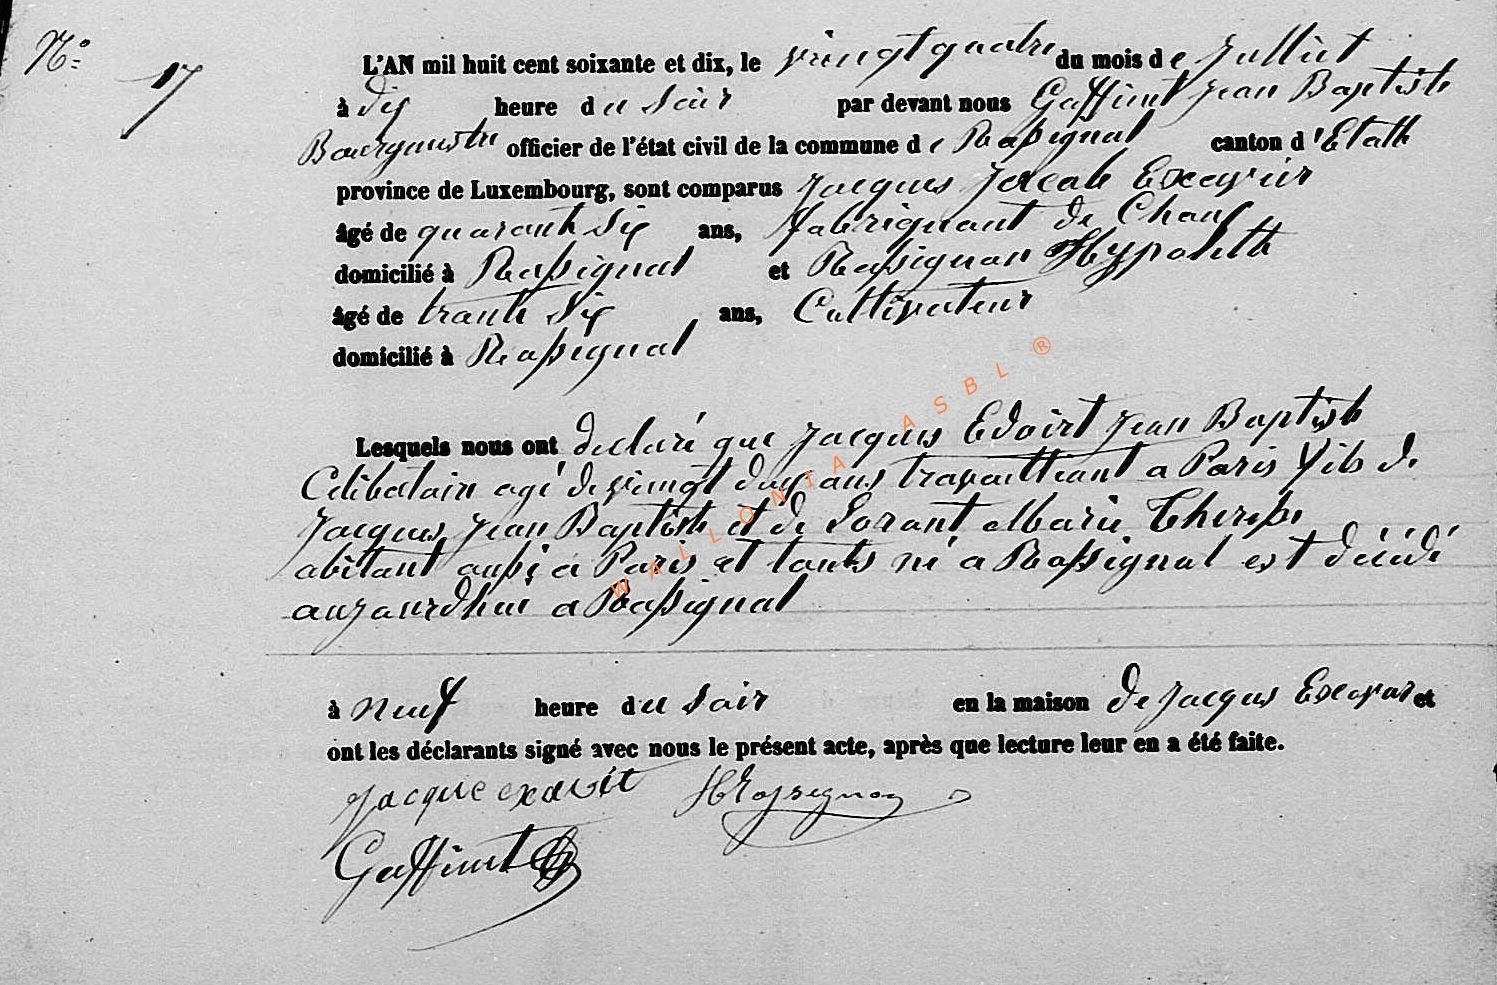 N°
17
L'AN mil huit cent soixante et dix, le vingt quatre du mois de Julliet
à dix heure du soir par devant nous Gaffinet Jean Baptiste
Bourgmestre officier de l'état civil de la commune de Rossignol canton d'Etalle
province de Luxembourg, sont comparus Jacques
âgé de quarante six ans, fabriquant de Chau
domicilié à Rossignol et Rossignon Hypolitte
âgé de trante six ans, Cultivateur
domicilié à Rossignol
Lesquels nous ont declaré que Jacques Edoirt Jean Baptiste
Celibatair agé de vingt dux ans travailliant a Paris fils de
Jacques Jean Baptiste et de Lorant Marie Theresse
abitant aussi a Paris et touts né a Rossignol est décédé
aujourdhui a Rossignol
à neuf heure du soir en la maison de Jacques et
ont les déclarants signé avec nous le présent acte, après que lecture leur en a été faite.
Jacque exavit HRossignon
Gaffinet
WALLONIA ASBL ®